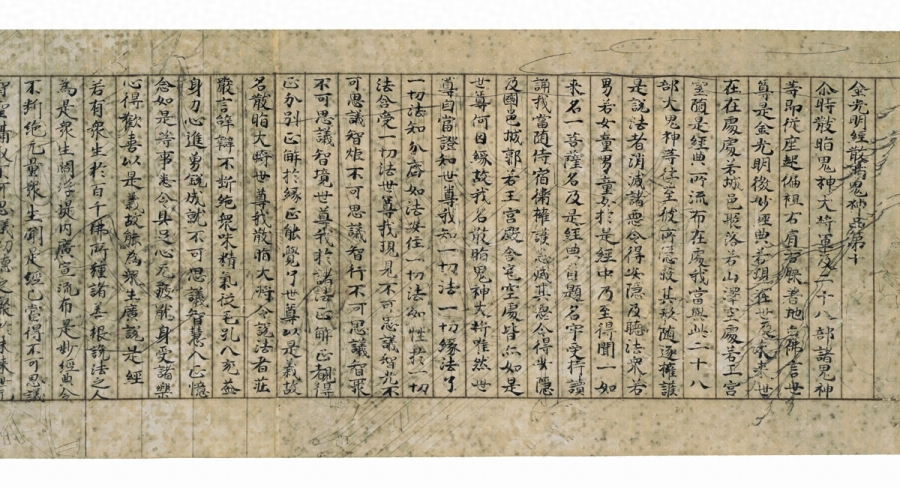 金光明經散脂鬼神品第十
尒時散脂鬼神大將軍及二十八部諸鬼神
等即從座起偏袒右肩右膝著地白佛言世
尊是金光明微妙經典若現在世及未來世
在在處處若城邑聚落若山澤空處若王宮
宅隨是經典所流布處我當與此二十八
部大鬼神等往至彼所隱蔽其形隨逐擁護
是說法者消滅諸惡令得安隱及聽法衆若
男若女童男童女於是經中乃至得聞一如
來名一菩薩名及是經典首題名字受持讀
誦我當隨侍宿衛擁護悉滅其惡令得安隱
及國邑城郭若王宮殿舍宅空處皆亦如是
世尊何因縁故我名散脂鬼神大將唯然世
尊自當證知世尊我知一切法一切縁法了
一切法知法分齊如法安住一切法如性於一切
法含受一切法世尊我現見不可思議智光不
可思議智炬不可思議智行不可思議智聚
不可思議智境世尊我於諸法正解正觀得
正分別正解於縁正能覺了世尊以是義故
名散脂大將世尊我散脂大將令說法者莊
嚴言辭辯不斷絶衆味精氣從毛孔入充益
身力心進勇銳成就不可思議智慧入正憶
念如是等事悉令具足心无疲猒身受諸樂
心得歡喜以是義故能為衆生廣說是經
若有衆生於百千佛所種諸善根說法之人
為是衆生閻浮提内廣宣流布是妙經典令
不斷絶无量衆生聞是經已當得不可思議